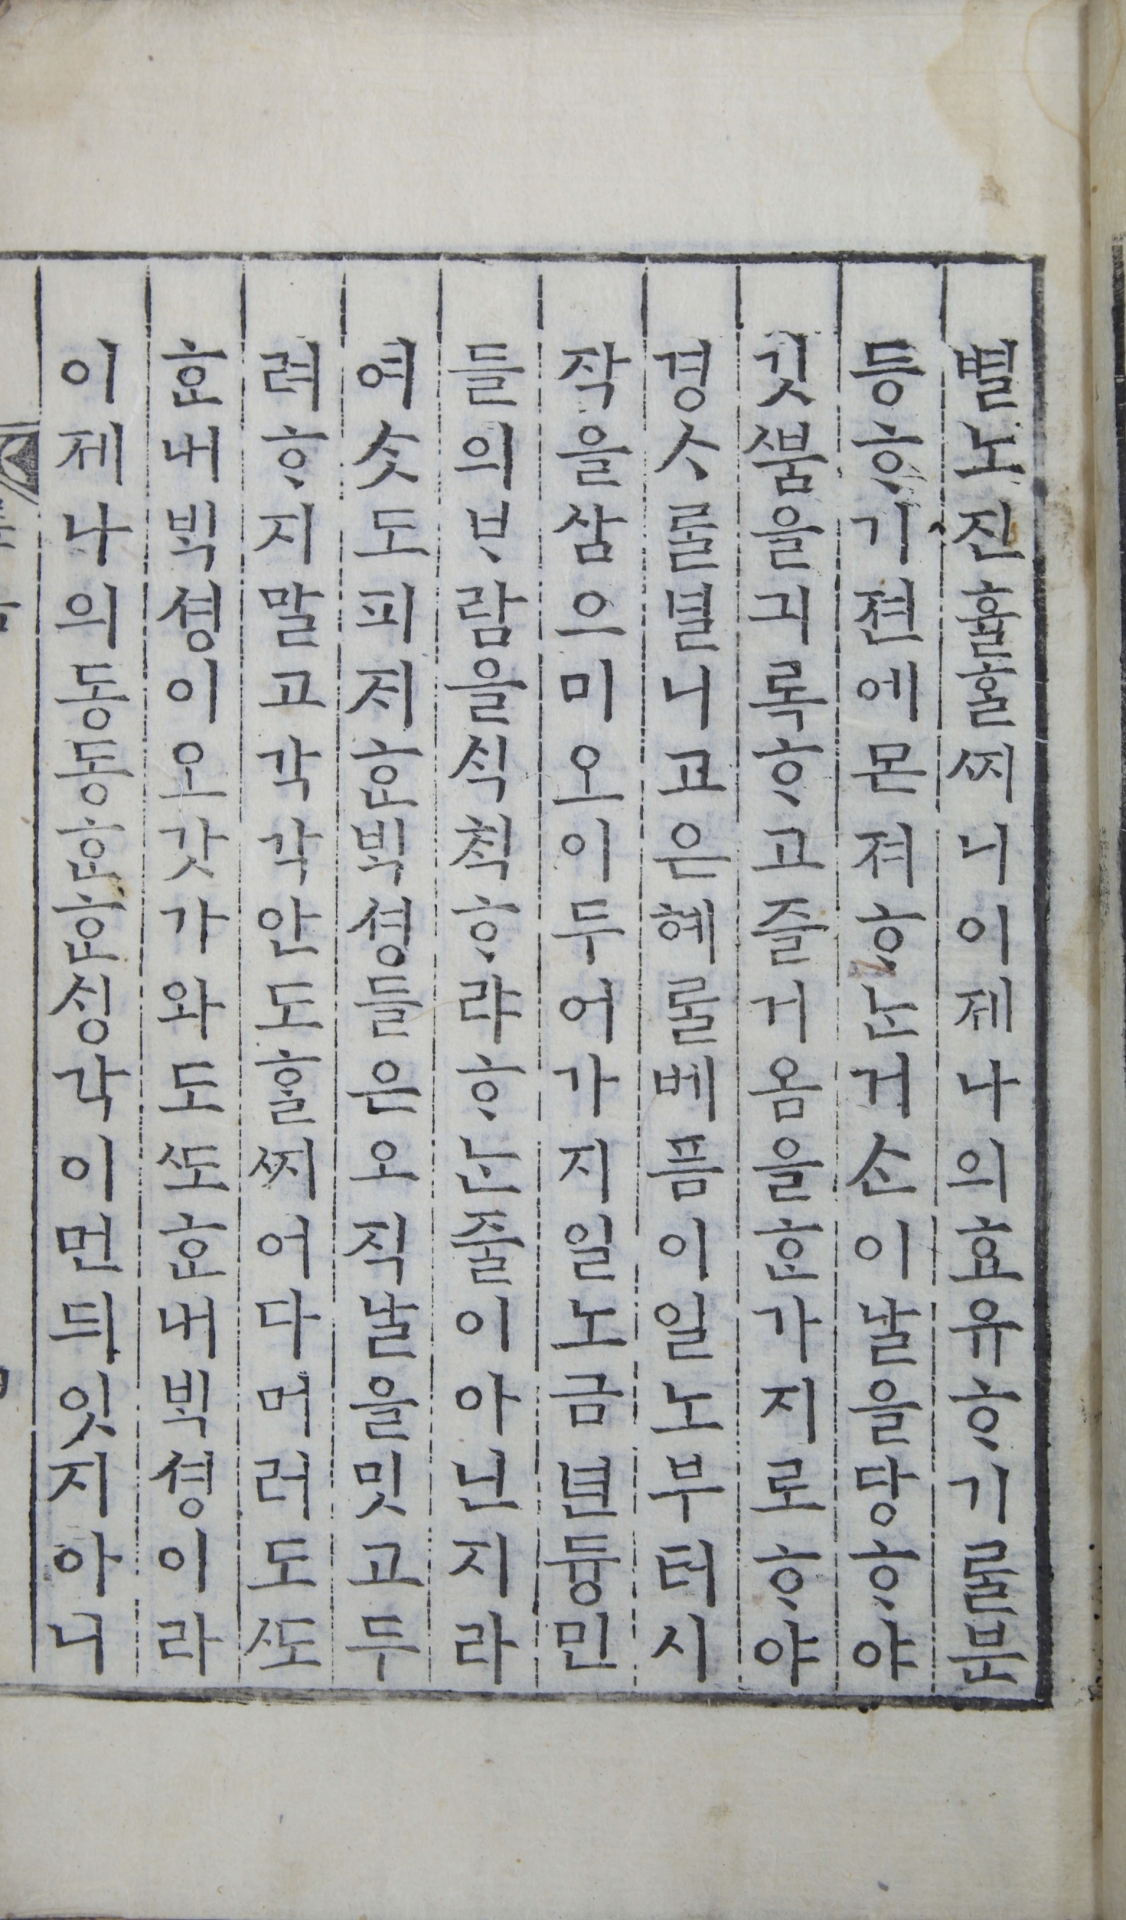 별노진휼ᄒᆞᆯ씨니이제나의효유ᄒᆞ기ᄅᆞᆯ분
등ᄒᆞ기젼에몬져ᄒᆞᄂᆞᆫ거ᄉᆞᆫ이날을당ᄒᆞ야
깃ᄲᅮᆷ을긔록ᄒᆞ고즐거옴을ᄒᆞᆫ가지로ᄒᆞ야
경ᄉᆞᄅᆞᆯ녈니고은혜ᄅᆞᆯ베픔이일노부터시
작을삼으미오이두어가지일노금년듕민
들의ᄇᆞ람을ᄉᆡᆨᄎᆡᆨᄒᆞ랴ᄒᆞᄂᆞᆫ줄이아닌지라
여ᄉᆞᆺ도피져ᄒᆞᆫᄇᆡᆨ셩들은오직날을밋고두
려ᄒᆞ지말고각각안도ᄒᆞᆯ씨어다머러도ᄯᅩ
ᄒᆞᆫ내ᄇᆡᆨ셩이오갓가와도ᄯᅩᄒᆞᆫ내ᄇᆡᆨ셩이라
이제나의동동ᄒᆞᆫᄒᆞᆫᄉᆡᆼ각이먼듸잇지아니